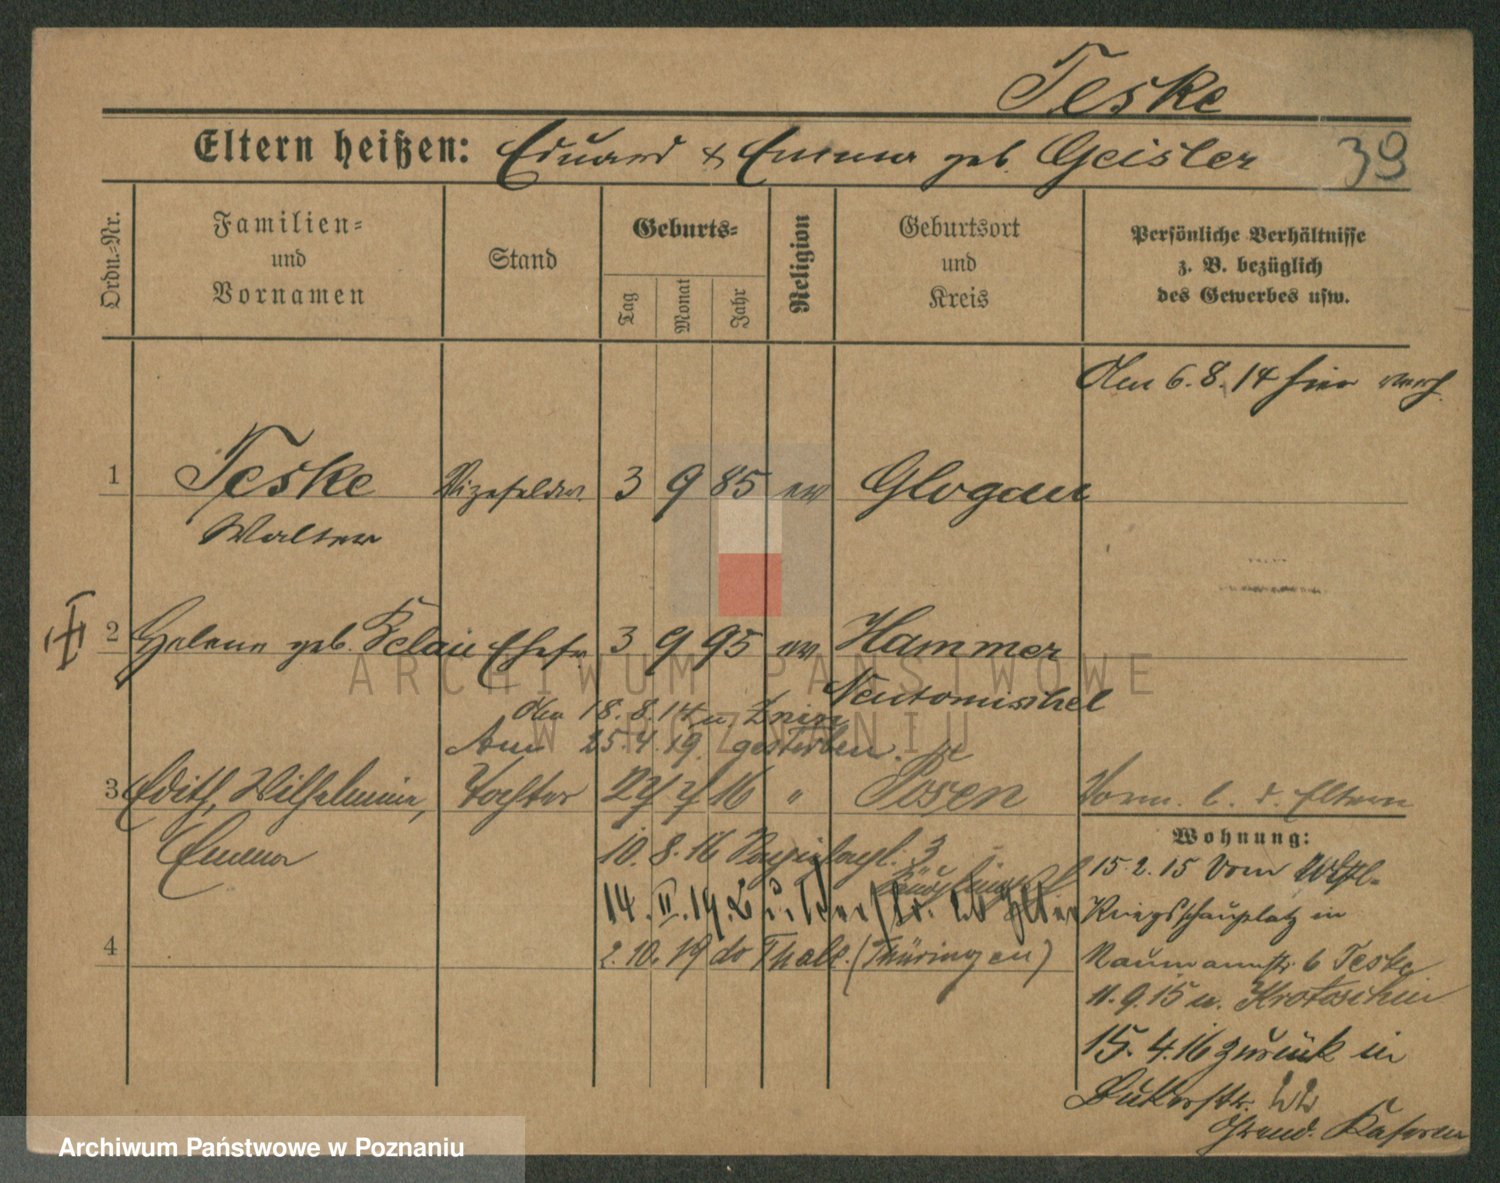 Teske
Eltern heißen: Eduard & Emma geb. Geisler
39
Ordn.-Nr.
Familien-
und
Vornamen
Stand
Geburts-
Tag
Monat
Jahr
Religion
Geburtsort
und
Kreis
Persönliche Verhältnisse
z. B. bezüglich
des Gewerbes usw.
Den 6.8.14 hier verh.
1 Teske Vizefeldw. 3 9 85 ev Glogau
Walter
2 Helene geb. Ehefr 3 9 95 ev Hammer
Neutomischel
Den 18.8.14 n. Znin
Am 25.4.19. gestorben.
3 Edith, Wilhelmine, Tochter 16 " Posen
Emma
Vorm. b. d. Eltern
Wohnung:
10.8.16 3
14. II. 19.
4
2.10.19 do Thale (Thüringen)
15.2.15 vom Westl-
Kriegsschauplatz in
Naumannstr. 6 Teske
11.9.15 n. Krotoschin
15.4.16 zurück in
Grend. Kaserne
ARCHIWUM PAŃSTWOWE
W POZNANIU
Archiwum Państwowe w Poznaniu